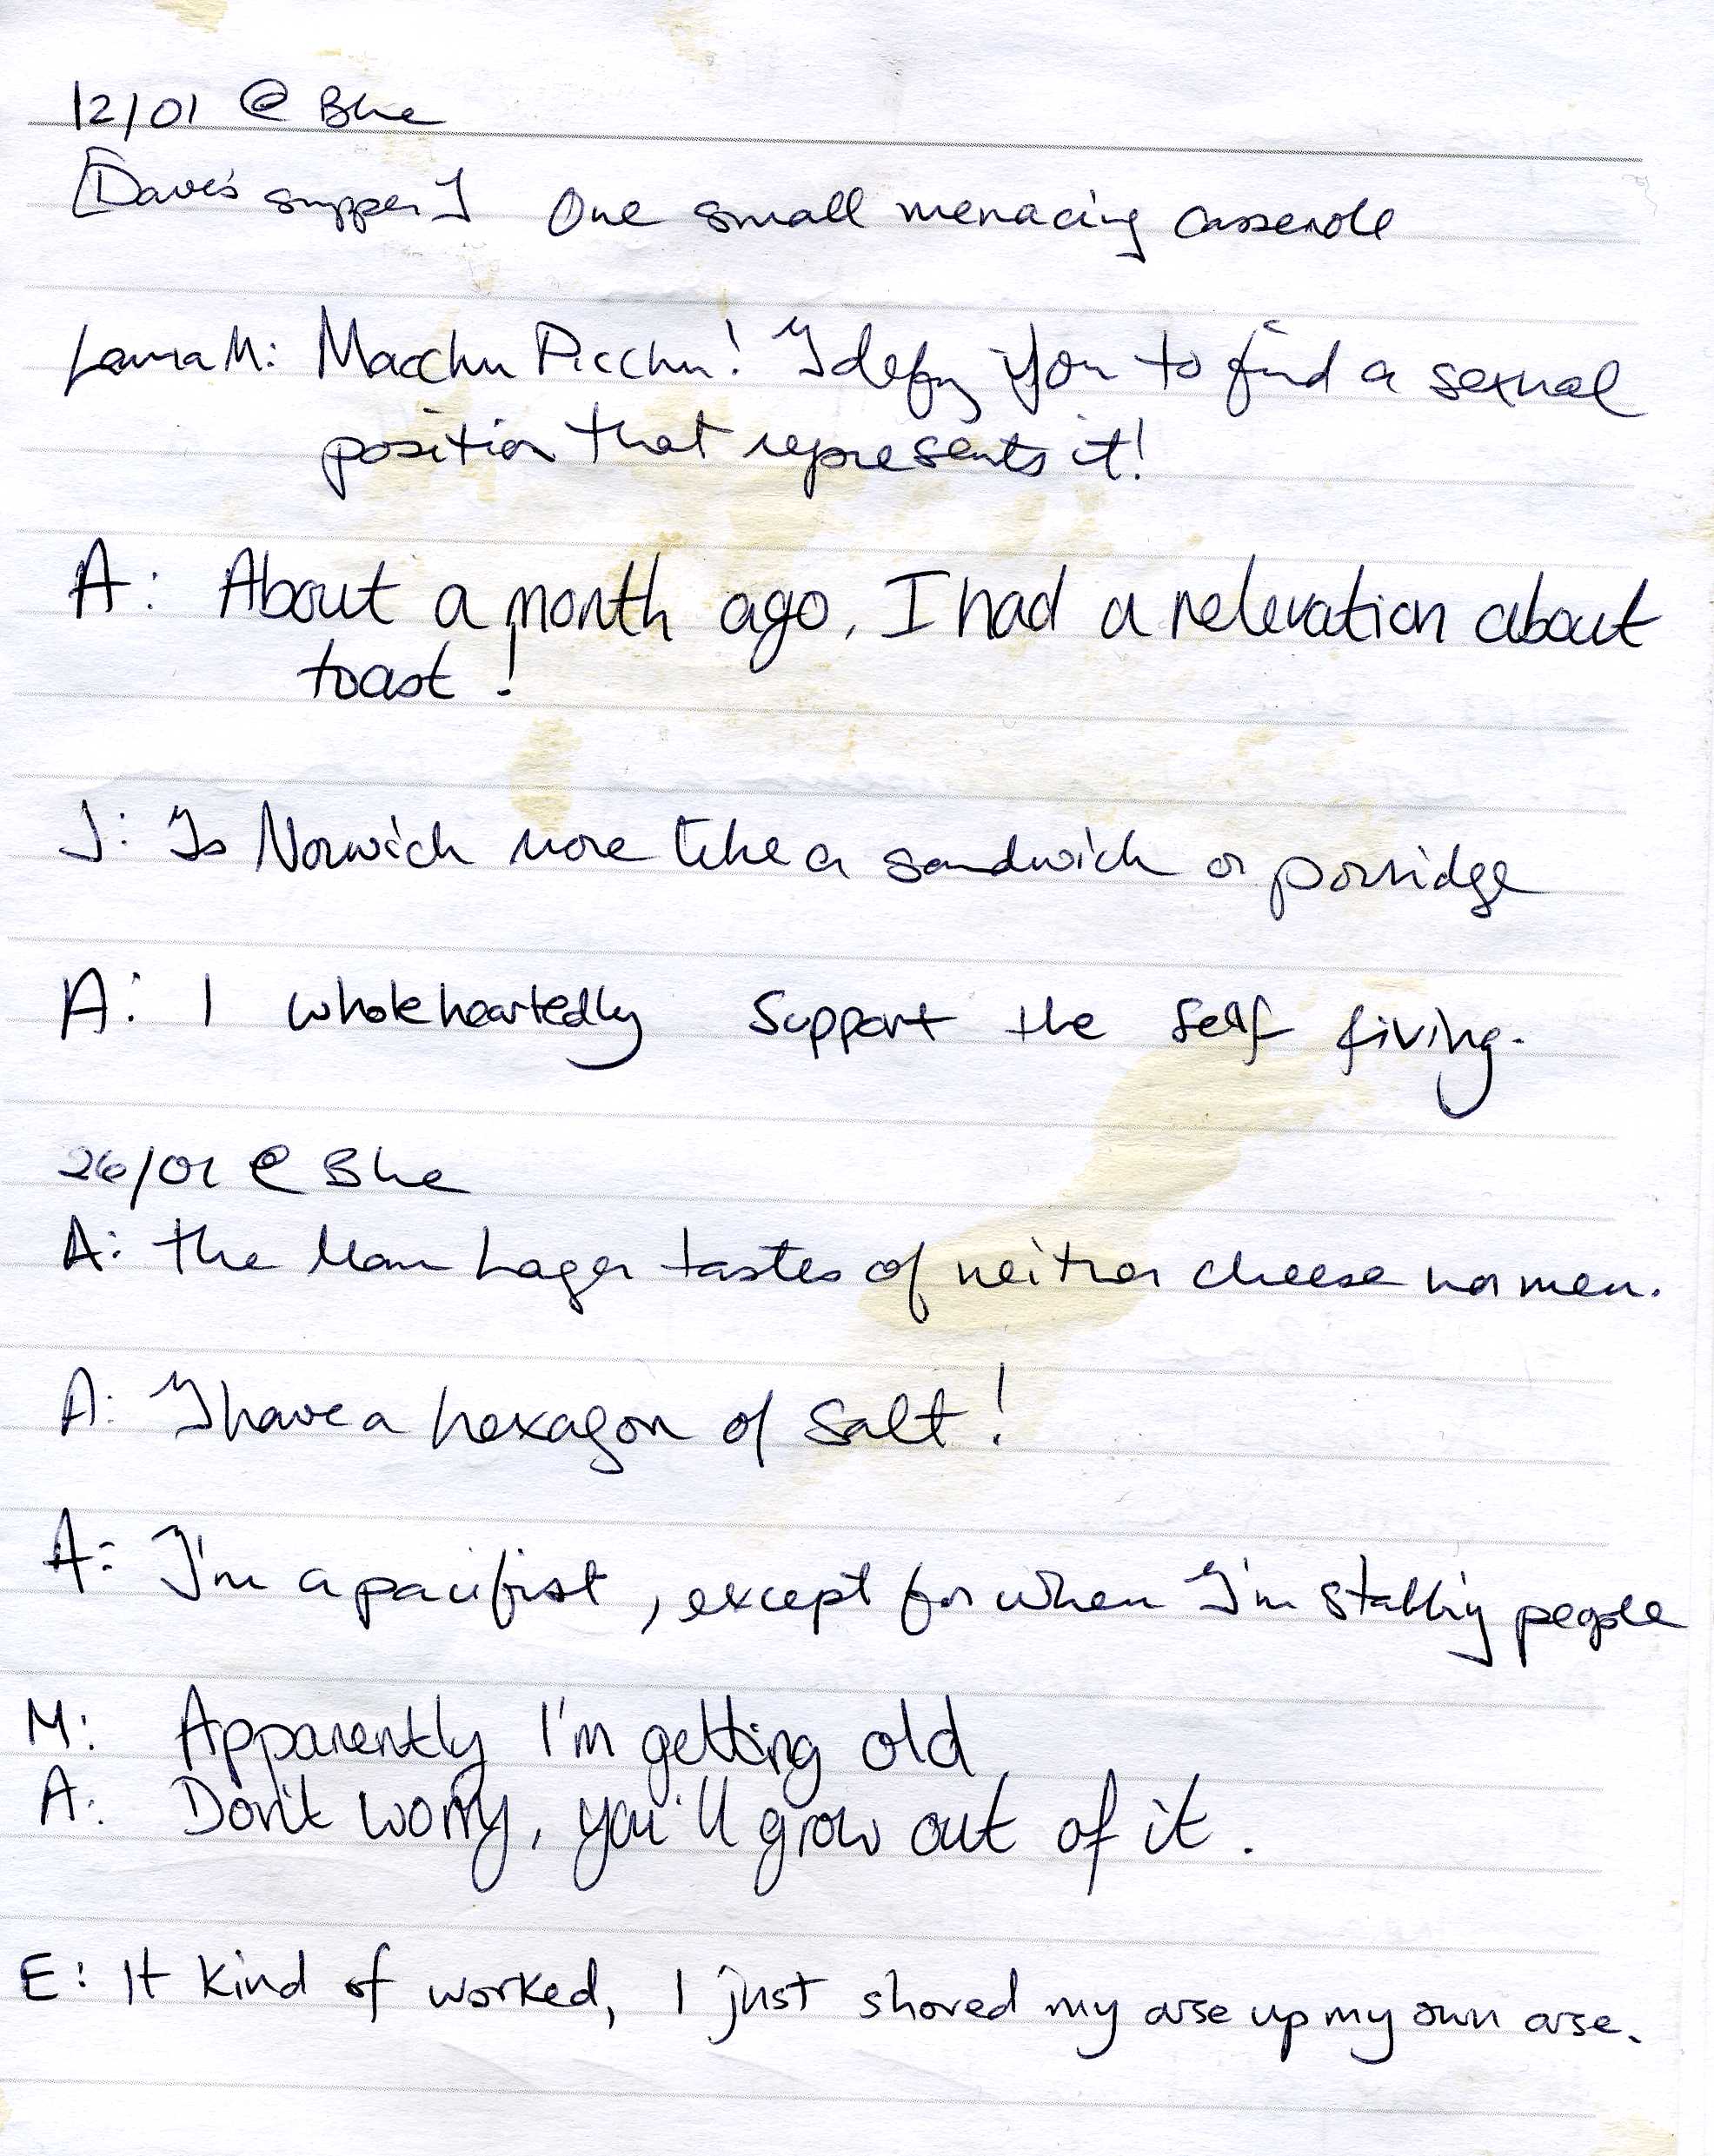 12/01 @ Blue
[Dave's supper] One small menacing casserole
Laura M: Macchu Picchu! I defy you to find a sexual
position that represents it!
A: About a month ago, I had a relevation about
toast!
J: Is Norwich more like a sandwich or porridge
A: I wholeheartedly support the self fiving.
26/01 @ Blue
A: The Man Lager tastes of neither cheese nor men.
A: I have a hexagon of salt!
A: I'm a pacifist, except for when I'm stabbing people
M: Apparently I'm getting old
A: Don't worry, you'll grow out of it.
E: It kind of worked, I just shoved my arse up my own arse.